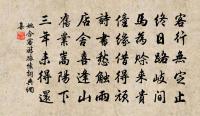 客行無定止
終日路岐間
馬為賒來貴
僮緣借得頑
詩書愁觸雨
店舍喜逢山
舊業嵩陽下
三年未得還
姚合客遊旅懷